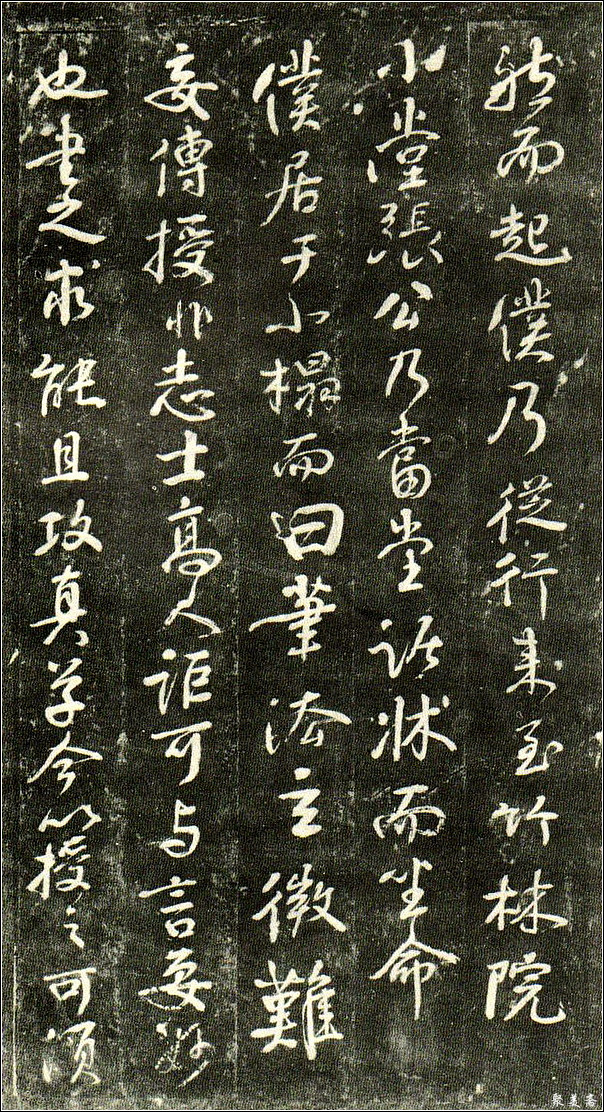 然而起僕乃從行来至竹林院
小堂張公乃當堂踞牀而坐命
僕居于小榻而曰筆法玄微難
妄傳授非志士高人詎可与言要妙
也書之求能且攻真草今以授之可須
聚美斋